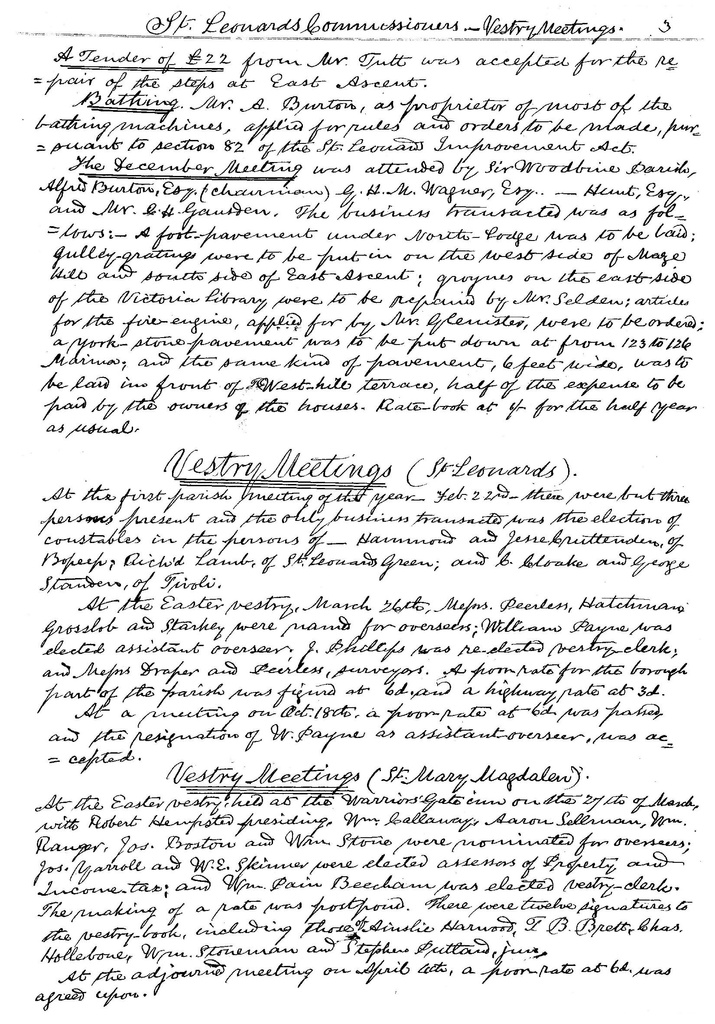 St. Leonards Commissioners. — Vestry Meetings. 3
A Tender of £22 from Mr. Tutt was accepted for the re=
=pair of the steps at East Ascent.
Bathing. Mr. A. Burton, as proprietor of most of the
bathing machines, applied for rules and orders to be made, pur=
=suant to section 82 of the St. Leonard Improvement Act.
The December Meeting was attended by Sir Woodbine Parish,
Alfred Burton, Esq. (chairman) G. H. M. Wagner, Esq. — Hunt, Esq.,
and Mr. C. H. Gausden. The business transacted was as fol=
=lows:- A foot-pavement under North-Lodge was to be laid;
gulley-gratings were to be put in on the west side of Maze
Hill and south side of East Ascent; groynes on the east side
of the Victoria Library were to be repaired by Mr. Selden; articles
for the fire-engine, applied for by Mr. Glenister, were to be ordered;
a york-stone pavement was to be put down at from 123 to 126
Marina; and the same kind of pavement, 6 feet wide, was to
be laid in front of West-hill terrace, half of the expense to be
paid by the owners of the houses. Rate-book at for the half year
as usual.
Vestry Meetings (St. Leonards).
At the first parish meeting of the year — Feb. 22nd — there were but three
persons present and the only business transacted was the election of
constables in the persons of — Hammond and Jesse Cruttenden, of
Bopeep; Rich'd Lamb, of St. Leonards Green; and C. Cloake and George
Standen, of Tivoli.
At the Easter vestry, March 26th, Messrs. Peerless, Hatchman,
Grosslob and Starkey were named for overseers; William Payne was
elected assistant overseer, J. Phillips was re-elected vestry-clerk;
and Messrs Draper and Peerless, surveyors. A poor-rate for the borough
part of the parish was figured at 6d. and a highway rate at 3d.
At a meeting on Oct. 18th, a poor-rate at 6d was passed,
and the resignation of W. Payne as assistant-overseer, was ac=
=cepted.
Vestry Meetings (St. Mary Magdalen).
At the Easter vestry, held at the Warriors' Gate inn on the 27th of March,
with Robert Hempsted presiding, Wm. Callaway, Aaron Sellman, Wm.
Ranger, Jos. Boston and Wm. Stone were nominated for overseers;
Jos. Yarroll and W. E. Skinner were elected assessors of Property and
Income-tax; and Wm. Pain Beecham was elected vestry-clerk.
The making of a rate was postpond. There were twelve signatures to
the vestry-book, including those of Ainslie Harwood, T. B. Brett, Chas.
Hollebone, Wm. Stoneman and Stephen Putland, jun.
At the adjourned meeting on April 4th, a poor-rate at 6d. was
agreed upon.